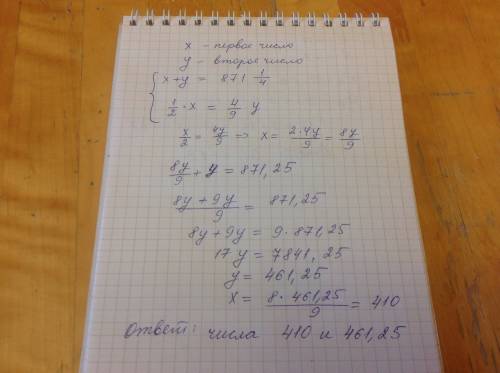 x - первое число
y - второе число
{ x + y = 871 1/4
1/2 · x = 4/9 y
x/2 = 4y/9 ⇒ x = 2·4y/9 = 8y/9
8y/9 + y = 871,25
8y + 9y/9 = 871,25
8y + 9y = 9 · 871,25
17 y = 7841,25
y = 461,25
x = 8 · 461,25/9 = 410
Ответ: числа 410 и 461,25